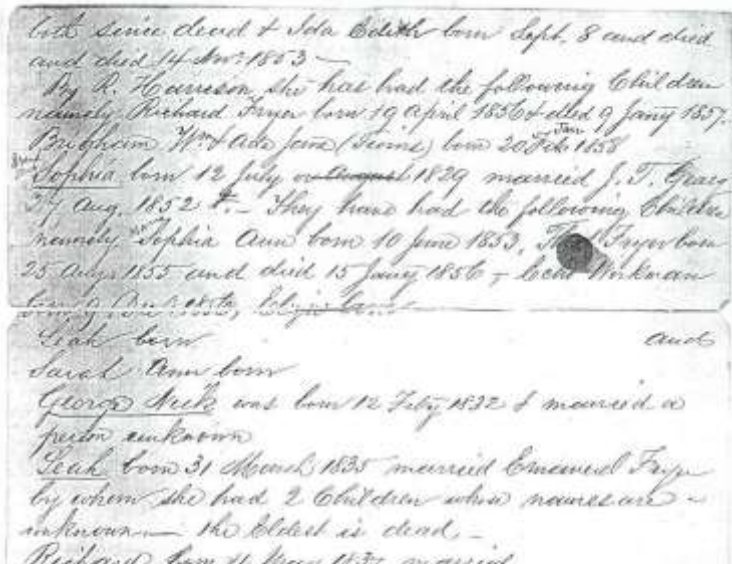 both since dead & Ida Edith born Sept. 8 and died
and died 14 Nov. 1853 —
By R. Harrison she has had the following Children
namely Richard Fryer born 19 April 1856 & died 9 Jany 1857.
Brigham Wm & Ada Jane (Twins) born 20 Feb. Jan 1858
Sophia born 12 July or August 1829 married J. T.
27 Aug. 1852 — They have had the following Children
namely Sophia Ann born 10 June 1853, Fryer born
25 Augt 1855 and died 15 Jany 1856 — Workman
born 9
Leah born and
Sarah Ann born
George Neek was born 12 Feby 1832 & married a
person unknown
Leah born 31 March 1835 married Emanuel Fryer
by whom she had 2 Children whose names are —
unknown — the Eldest is dead. —
Richard born married